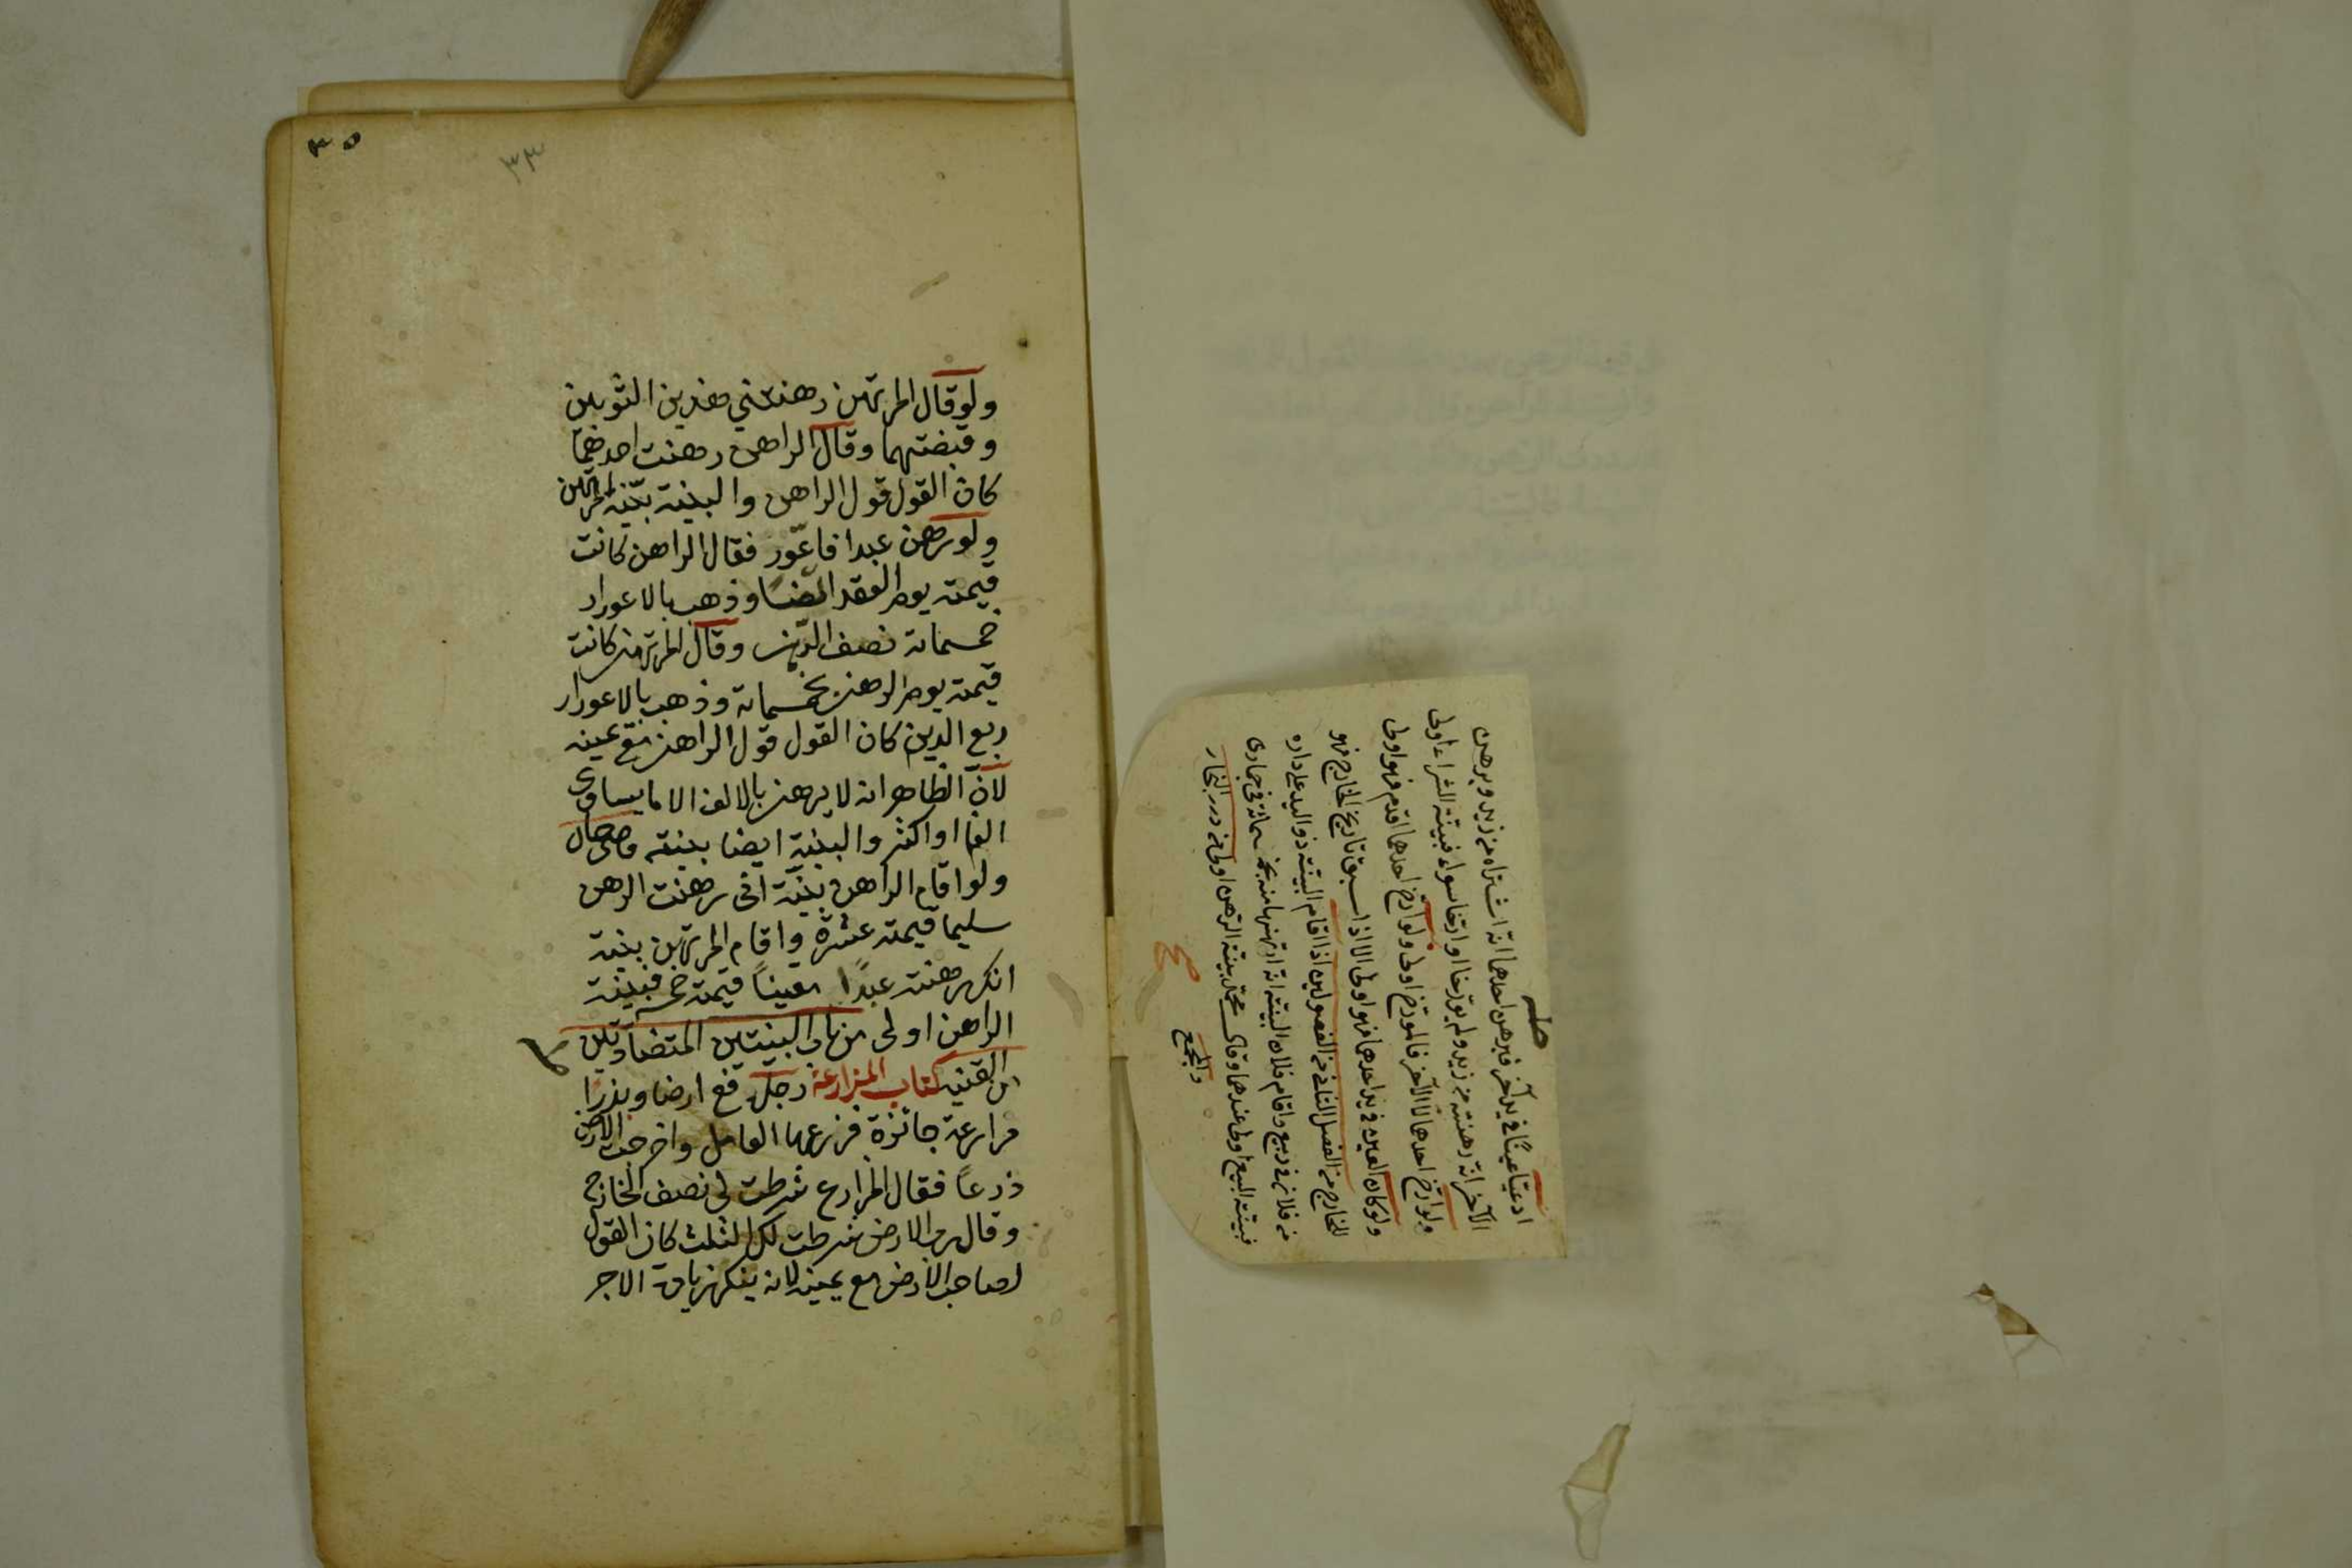 ٣٥
٣٣
ولو قال المرتهن رهنتني هذين الثوبين
وقبضتهما وقال الراهن رهنت احدهما
كان القول قول الراهن والبينة بينة المرتهن
ولو رهن عبدا فاعور فقال الراهن كانت
قيمته يوم العقد الفا وذهب بالاعورار
خمسمائة نصف الدين وقال المرتهن كانت
قيمته يوم الرهن خمسمائة وذهب بالاعورار
ربع الدين كان القول قول الراهن مع يمينه
لان الظاهر انه لا يرهن بالالف الا ما يساوى
الفا او اكثر والبينة ايضا بينته
ولو اقام الراهن بينة انى رهنت الرهن
سليما قيمته عشرة واقام المرتهن بينة
انك رهنته عبدا معيبا قيمته خمسة فبينة
الراهن اولى من باب البينتين المتضادتين
من القنية كتاب المزارعة رجل دفع ارضا وبذرا
مزارعة جائزة فزرعها العامل واخرجت الارض
زرعا فقال المزارع شرطت لى نصف الخارج
وقال رب الارض شرطت لك الثلث كان القول
لصاحب الارض مع يمينه لانه ينكر زيادة الاجر
ادعيا عينا في يد آخر فبرهن احدهما انه اشتراه من زيد وبرهن
الآخر انه رهنه من زيد ولم يؤرخا او ارخا سواء فبينة الشراء اولى
ولو ارخ احدهما لا الآخر فالمؤرخ اولى ولو ارخ احدهما اقدم فهو اولى
ولو كان العين في يد احدهما فهو اولى الا اذا سبق تاريخ الخارج فهو
للخارج من الفصل الثاني من الفصولين اذا اقام البينة ذو اليد على داره
من فلان في ربيع واقام فلان البينة انه ارتهنها منه بخمسمائة في جمادى
فبينة البيع اولى عندهما وقال محمد بينة الرهن اولى من درر البحار
والمجمع